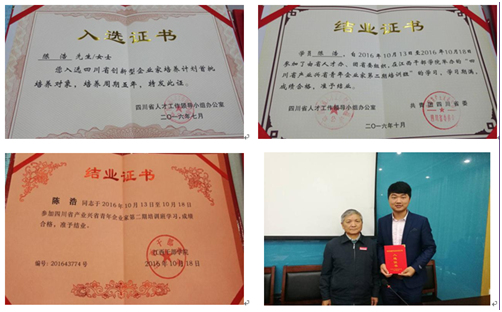 入选证书
陈 浩 先生/女士
您入选四川省创新型企业家培养计划首批
培养对象，培养周期五年，特发此证。
四川省人才工作领导小组办公室
二〇一六年七月
结业证书
学员 陈 浩，自2016年10月13日至2016年10月18日
参加了由省人才办、团省委组织，在江西干部学院举办的“四
川省产业兴省青年企业家第二期培训班”的学习，学习期满，
成绩合格，准予结业。
四川省人才工作领导小组办公室
共青团四川省委
二〇一六年十月
结业证书
陈 浩 同志于2016年10月13日至10月18日
参加四川省产业兴省青年企业家第二期培训班学习，成绩
合格，准予结业。
江西干部学院
编号：201643774号
2016年10月18日